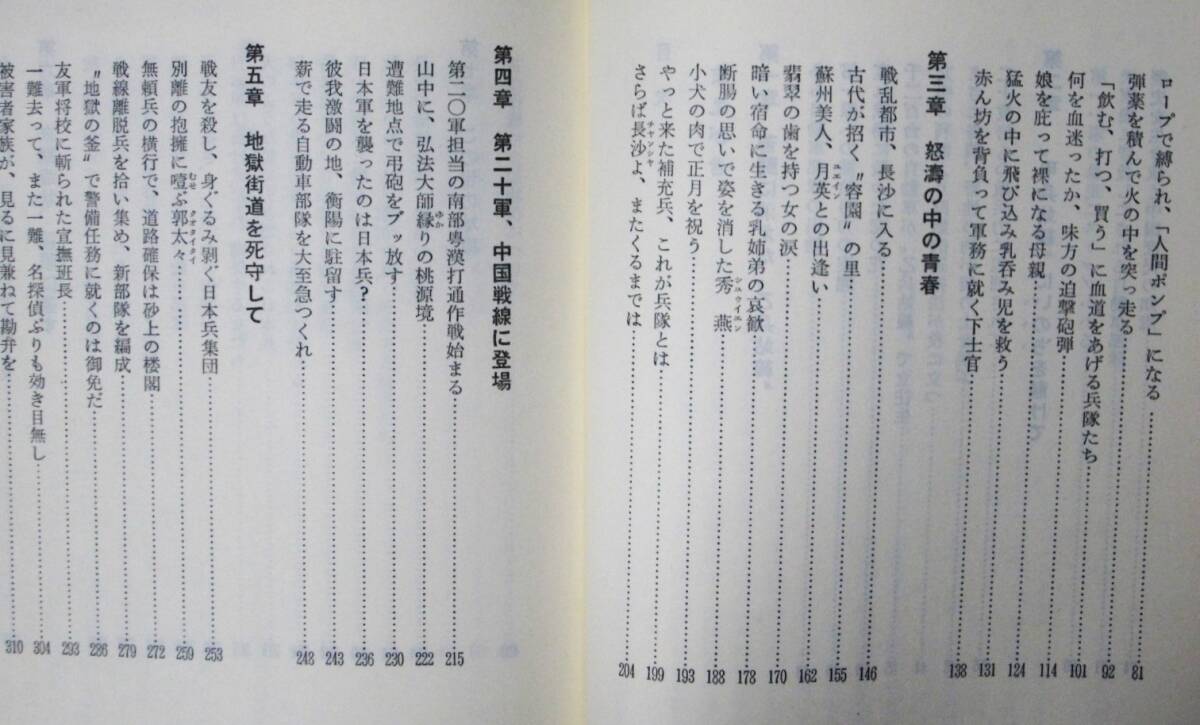 ロープで縛られ、「人間ポンプ」になる…… 81
弾薬を積んで火の中を突っ走る…… 92
「飲む、打つ、買う」に血道をあげる兵隊たち…… 101
何を血迷ったか、味方の迫撃砲弾…… 114
娘を庇って裸になる母親…… 124
猛火の中に飛び込み乳呑み児を救う…… 131
赤ん坊を背負って軍務に就く下士官…… 138
第三章　怒濤の中の青春
戦乱都市、長沙に入る…… 146
古代が招く〝容園〟の里…… 155
蘇州美人、月英との出逢い…… 162
翡翠の歯を持つ女の涙…… 170
暗い宿命に生きる乳姉弟の哀歓…… 178
断腸の思いで姿を消した秀燕…… 188
小犬の肉で正月を祝う…… 193
やっと来た補充兵、これが兵隊とは…… 199
さらば長沙よ、またくるまでは…… 204
第四章　第二十軍、中国戦線に登場
第二〇軍担当の南部粤漢打通作戦始まる…… 215
山中に、弘法大師縁りの桃源境…… 222
遭難地点で弔砲をブッ放す…… 230
日本軍を襲ったのは日本兵?…… 236
彼我激闘の地、衡陽に駐留す…… 243
薪で走る自動車部隊を大至急つくれ…… 248
第五章　地獄街道を死守して
戦友を殺し、身ぐるみ剥ぐ日本兵集団…… 253
別離の抱擁に噎ぶ郭太々…… 259
無頼兵の横行で、道路確保は砂上の楼閣…… 272
戦線離脱兵を拾い集め、新部隊を編成…… 279
〝地獄の釜〟で警備任務に就くのは御免だ…… 286
友軍将校に斬られた宣撫班長…… 293
一難去って、また一難、名探偵ぶりも効き目無し…… 304
被害者家族が、見るに見兼ねて勘弁を…… 310